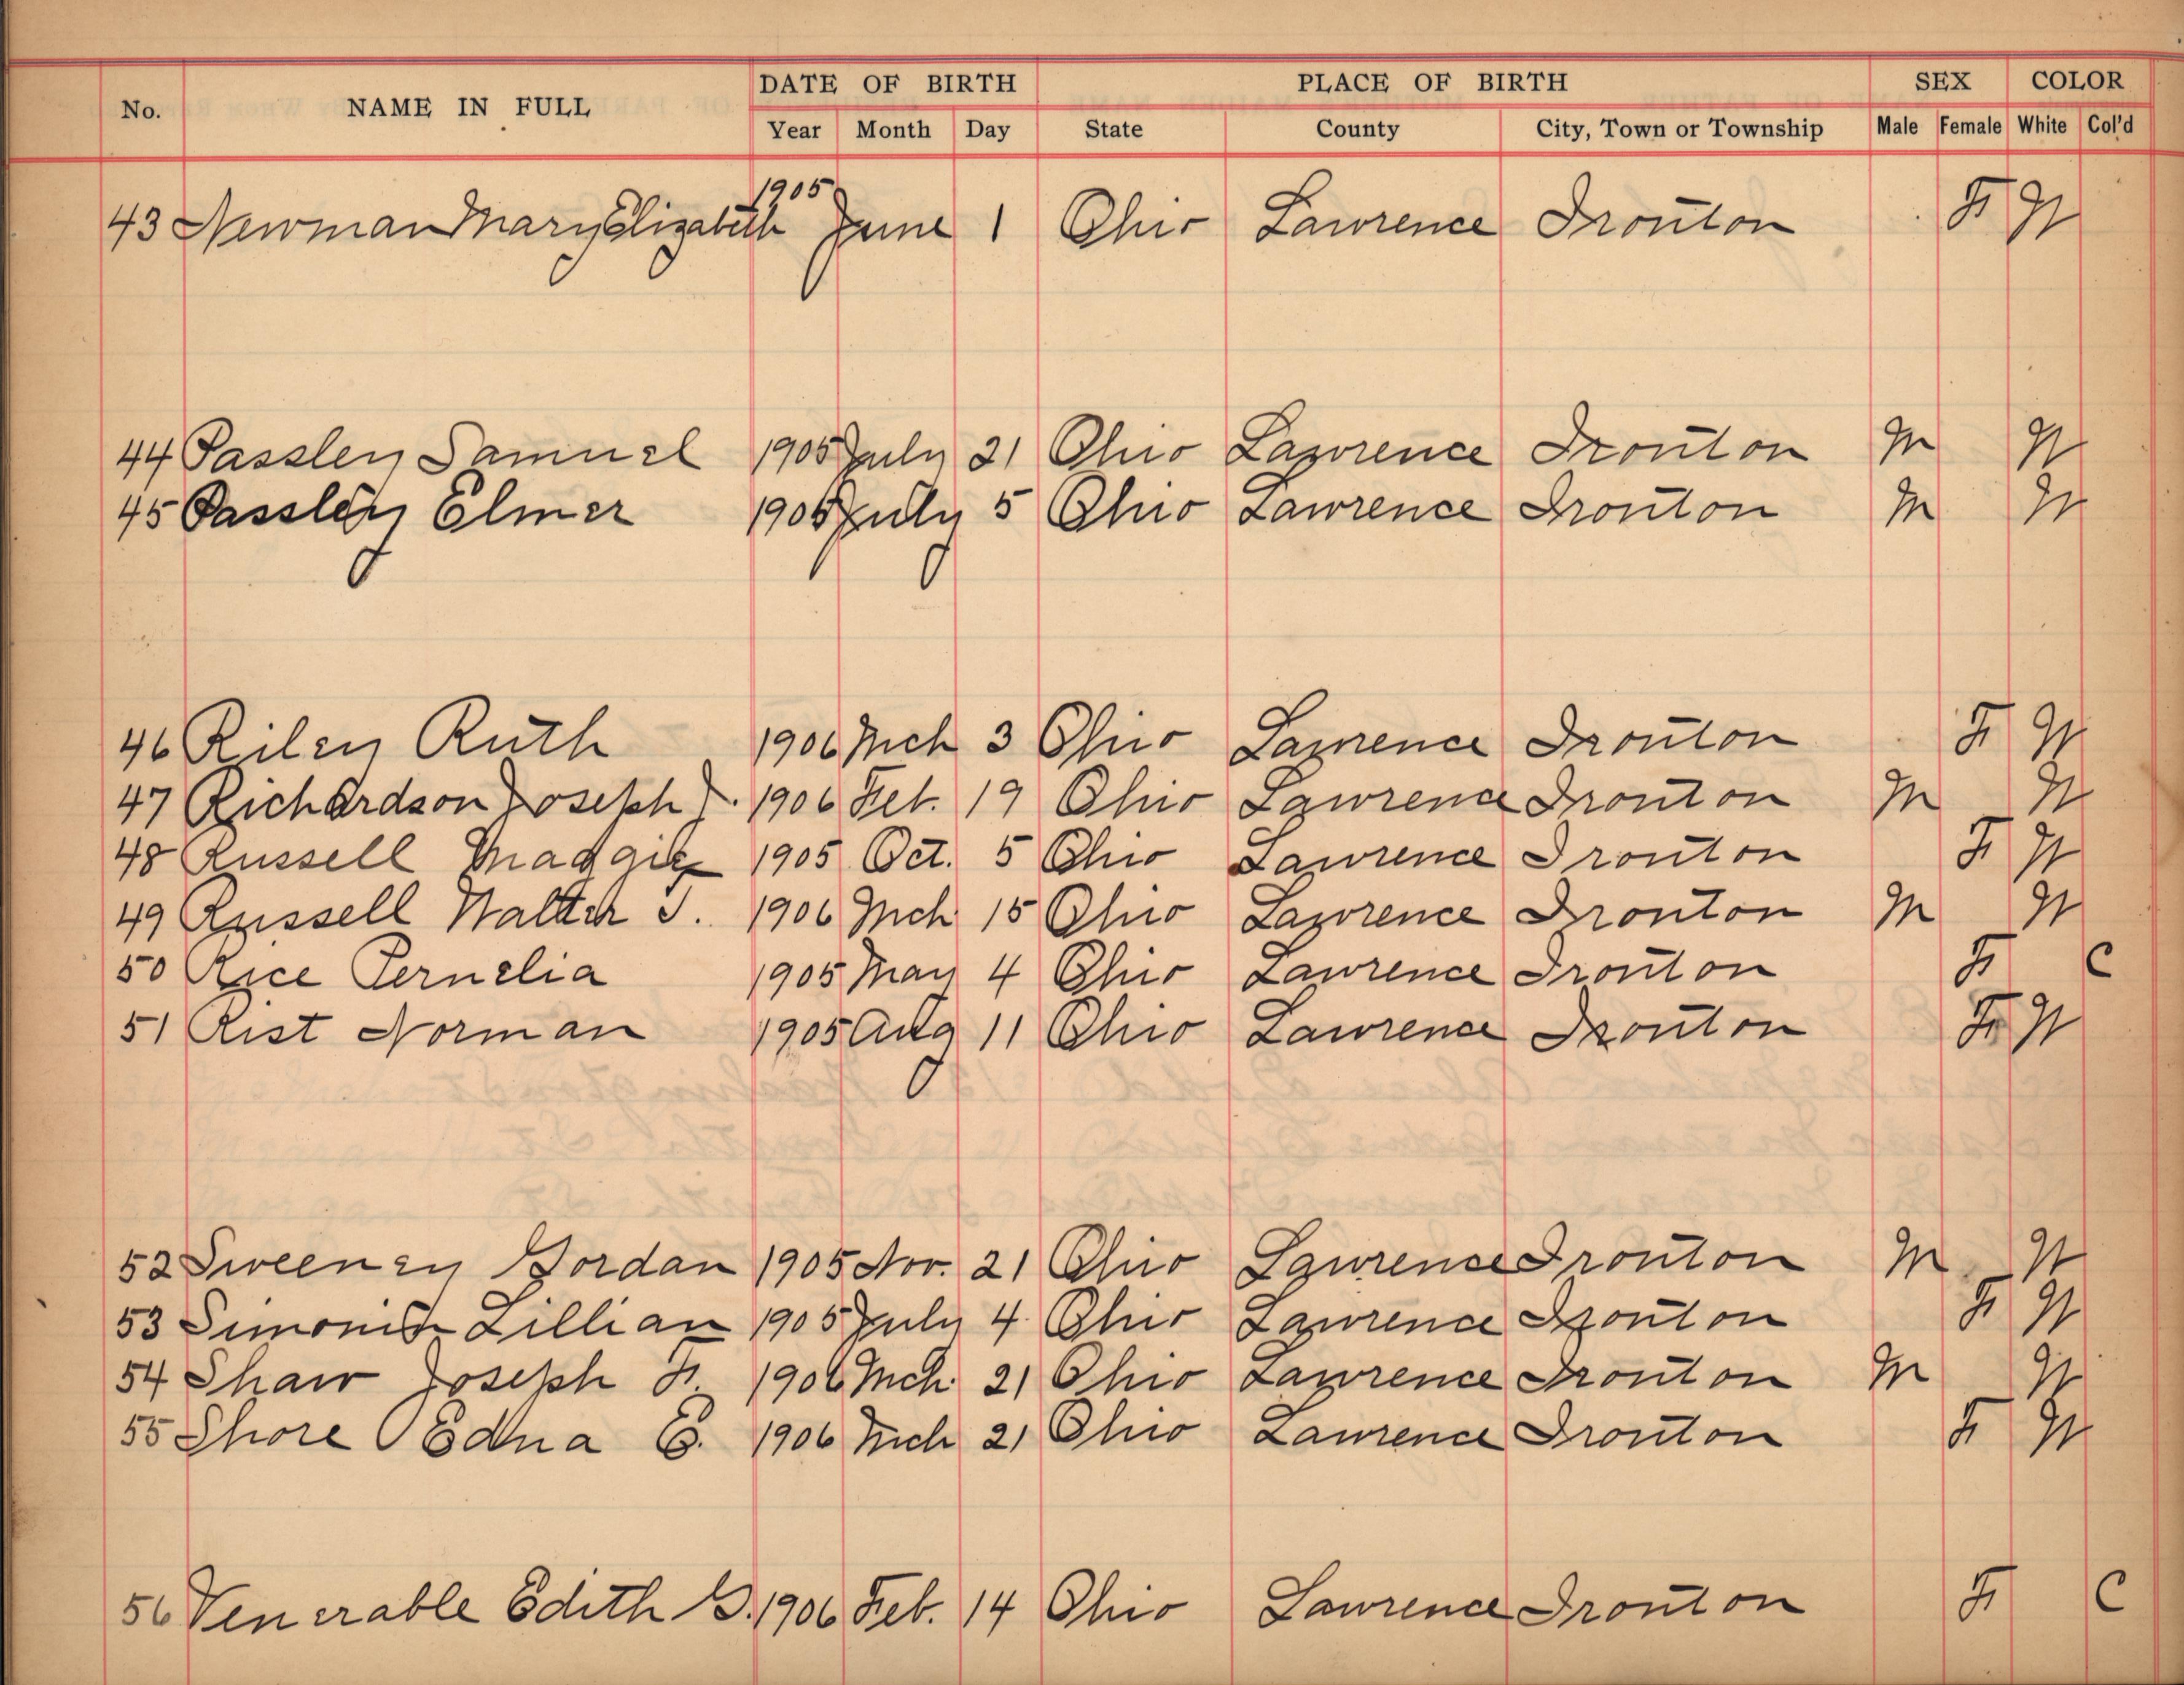 DATE OF BIRTH PLACE OF BIRTH SEX COLOR
No. NAME IN FULL Year Month Day State County City, Town or Township Male Female White Col'd
43 Newman Mary Elizabeth 1905 June 1 Ohio Lawrence Ironton F W
44 Passley Samuel 1905 July 21 Ohio Lawrence Ironton M W
45 Passley Elmer 1905 July 5 Ohio Lawrence Ironton M W
46 Riley Ruth 1906 Mch 3 Ohio Lawrence Ironton F W
47 Richardson Joseph J. 1906 Feb. 19 Ohio Lawrence Ironton M W
48 Russell Maggie 1905 Oct. 5 Ohio Lawrence Ironton F W
49 Russell Walter J. 1906 Mch 15 Ohio Lawrence Ironton M W
50 Rice Pernelia 1905 May 4 Ohio Lawrence Ironton F C
51 Rist Norman 1905 Aug 11 Ohio Lawrence Ironton F W
52 Sweeney Gordan 1905 Nov. 21 Ohio Lawrence Ironton M W
53 Lillian 1905 July 4 Ohio Lawrence Ironton F W
54 Shaw Joseph F. 1906 Mch. 21 Ohio Lawrence Ironton M W
55 Shore Edna E. 1906 Mch 21 Ohio Lawrence Ironton F W
56 Venerable Edith G. 1906 Feb. 14 Ohio Lawrence Ironton F C